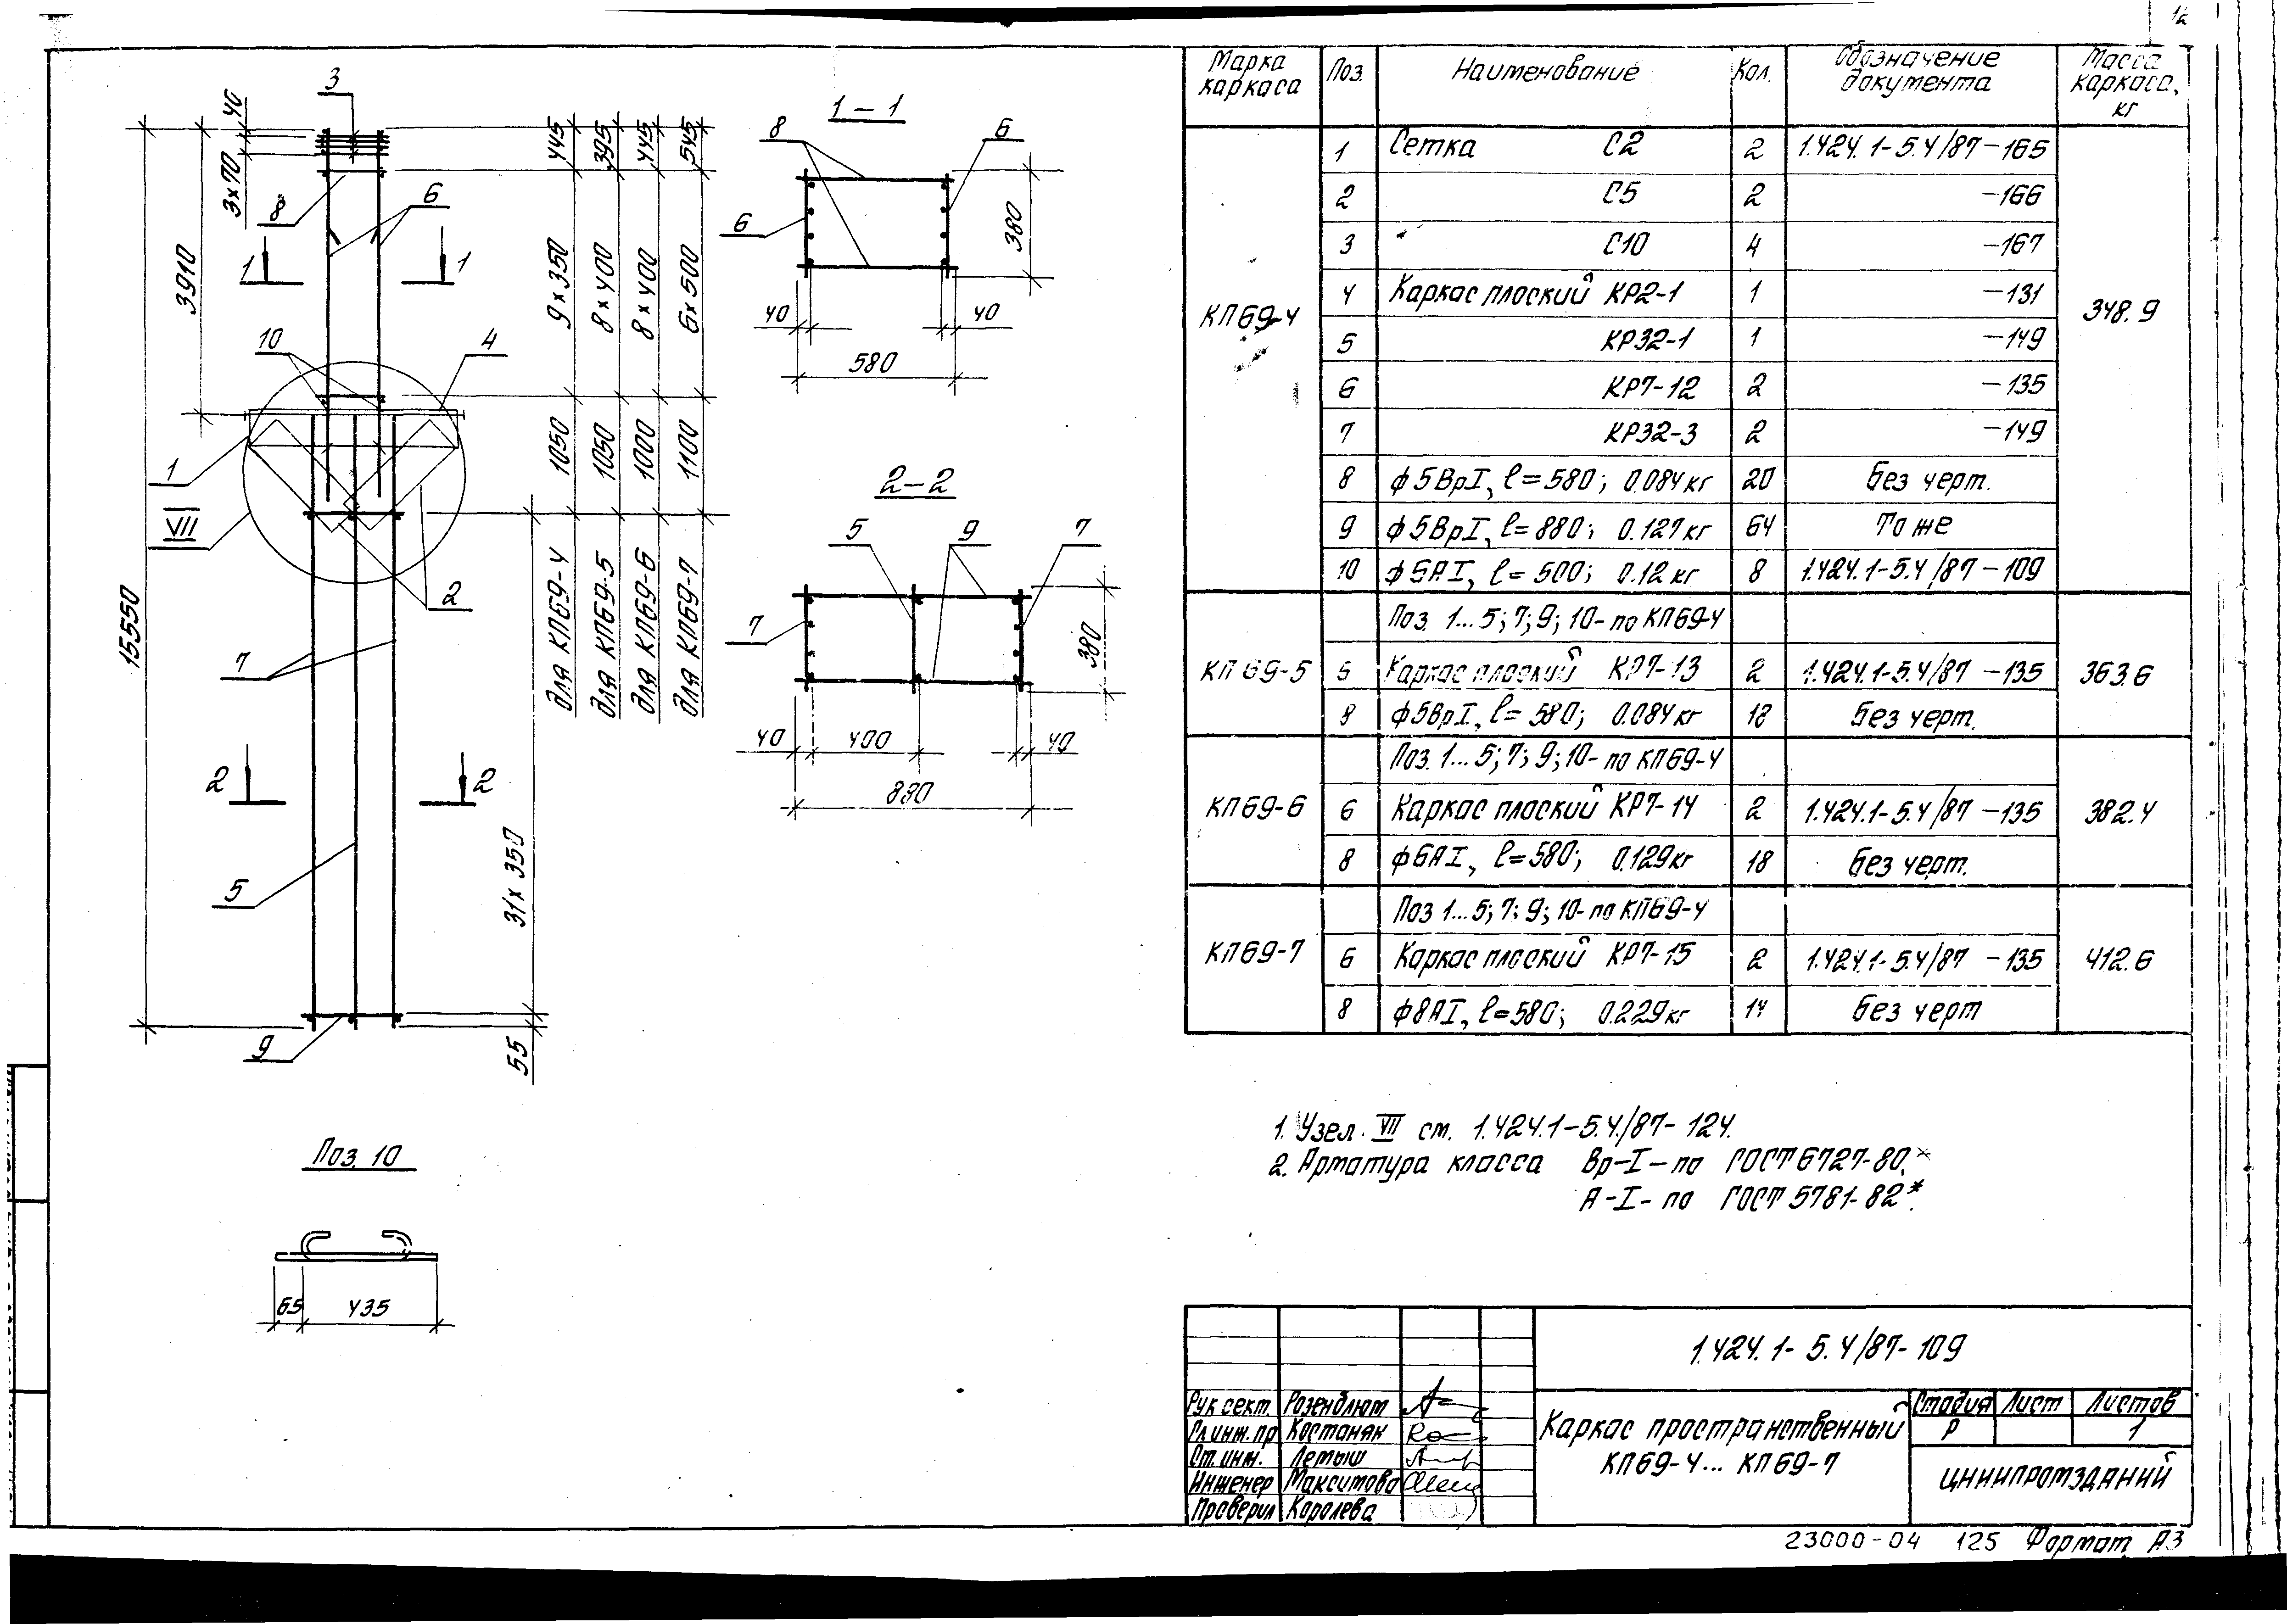 3
40
3×70
3910
15550
8
6
1
1
10
4
1
VII
2
7
2
2
5
9
445
395
445
545
9×350
8×400
8×400
6×500
1050
1050
1000
1100
для КП69-4
для КП69-5
для КП69-6
для КП69-7
31×350
55
1-1
8
6
6
380
40
40
580
2-2
5
9
7
7
380
40
400
40
880
Поз. 10
65
435
Марка каркаса
Поз.
Наименование
Кол.
Обозначение документа
Масса каркаса, кг
КП69-4
348.9
1 Сетка С2 2 1.424.1-5.4/87-165
2 С5 2 -166
3 " С10 4 -167
4 Каркас плоский КР2-1 1 -131
5 КР32-1 1 -149
6 КР7-12 2 -135
7 КР32-3 2 -149
8 ф5ВрI, ℓ=580; 0.084кг 20 Без черт.
9 ф5ВрI, ℓ=880; 0.127кг 64 То же
10 ф6АI, ℓ=500; 0.12кг 8 1.424.1-5.4/87-109
Поз. 1...5; 7; 9; 10- по КП69-4
КП69-5 6 Каркас плоский КР7-13 2 1.424.1-5.4/87-135 363.6
8 ф5ВрI, ℓ=580; 0.084кг 18 Без черт.
Поз. 1...5; 7; 9; 10- по КП69-4
КП69-6 6 Каркас плоский КР7-14 2 1.424.1-5.4/87-135 382.4
8 ф6АI, ℓ=580; 0.129кг 18 Без черт.
Поз 1...5; 7; 9; 10- по КП69-4
КП69-7 6 Каркас плоский КР7-15 2 1.424.1-5.4/87-135 412.6
8 ф8АI, ℓ=580; 0.229кг 14 Без черт
1. Узел VII см. 1.424.1-5.4/87-124.
2. Арматура класса Вр-I-по ГОСТ 6727-80.*
А-I-по ГОСТ 5781-82*.
1.424.1-5.4/87-109
Рук сект. Розенблюм
Гл.инж.пр Костаняк
Ст. инж. Летыш
Инженер Максимова
Проверил Королева
Каркас пространственный
КП69-4... КП69-7
Стадия Лист Листов
Р 1
ЦНИИПРОМЗДАНИЙ
23000-04 125 Формат А3